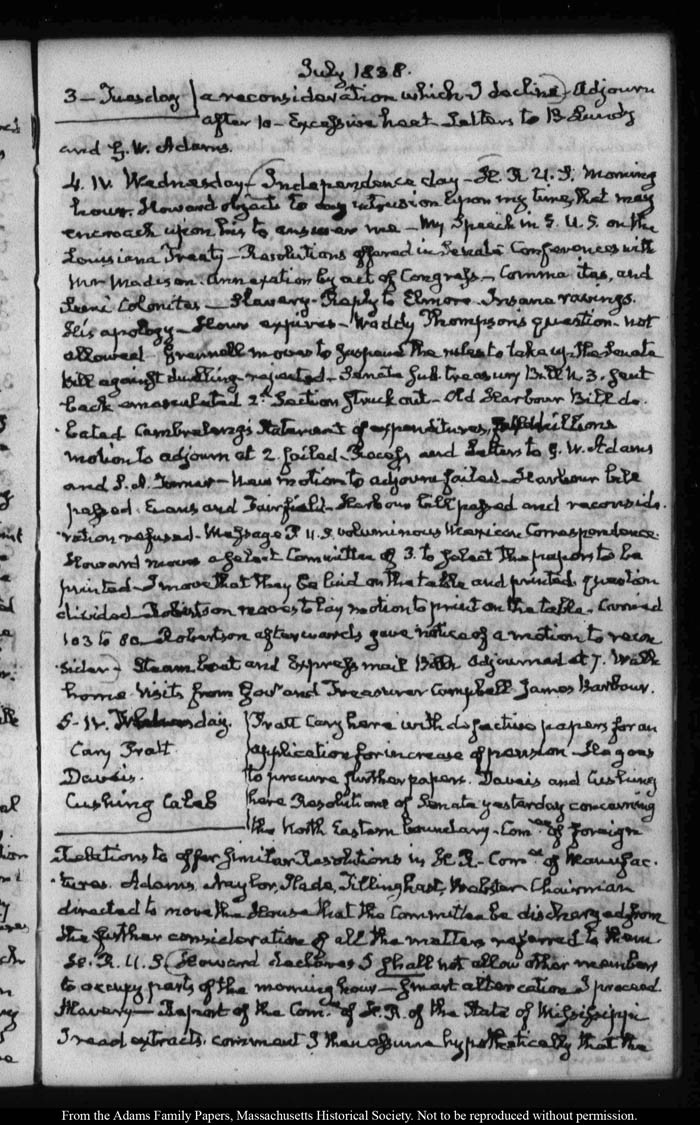 July 1838.
3 - Tuesday | a reconsideration which I decline - Adjourn
after 10 - Excessive heat Letters to B. Lundy
and G. W. Adams.
4. IV. Wednesday - Independence day - H. R. U. S. Morning
hour. Howard objects to any intrusion upon my time, that may
encroach upon his to answer me - My Speech in S. U. S. on the
Louisiana Treaty - Resolutions offered in Senate Conferences with
Mr Madison. annexation by act of Congress - Comma itas, and
Semi Colonitas - Slavery - Reply to Elmore Insane ravings.
His apology - Hour expires - Waddy Thompson's question not
allowed - Grennell moves to suspend the rules to take up the Senate
bill against duelling - rejected - Senate Sub. treasury Bill N. 3. sent
back emasculated 2d Section struck out - Old Harbour Bill de-
bated Cambreleng's Statement of expenditures, millions
motion to adjourn at 2. failed - Recess and Letters to G. W. Adams
and - New motion to adjourn failed - Harbour bill
passed. Evans and Fairfield - Harbour bill passed and reconside-
ration refused - Message P U.S. voluminous Mexican Correspondence.
Howard moves a Select Committee of 3. to select the papers to be
printed - I move that they be laid on the table and printed. question
divided - Robertson moves to lay motion to print on the table. Carried
103 to 80 - Robertson afterwards gave notice of a motion to recon-
sider - Steam boat and Express mail Bills Adjourned at 7. Walk
home Visits from Govr and Treasurer Campbell James Barbour.
5 - IV. Thursday. | Pratt Cary here with defective papers for an
Cary Pratt | application for increase of pension - He goes
Davis. | to procure further papers. Daveis and Cushing
Cushing Caleb | here Resolutions of Senate yesterday concerning
the North Eastern boundary - Comee of Foreign
Relations to offer similar Resolutions in H. R - Comee of Manufac-
tures. Adams, Naylor, Slade, Tillinghast, Webster Chairman
directed to move the House that the Committee be discharged from
the further consideration of all the matters referred to them.
H. R. U. S. Howard declares I shall not allow other members
to occupy parts of the morning hour - smart altercation I proceed
Slavery - Report of the Comee of H. R. of the State of Mississippi
I read extracts. comment I then assume hypothetically that the
From the Adams Family Papers, Massachusetts Historical Society. Not to be reproduced without permission.